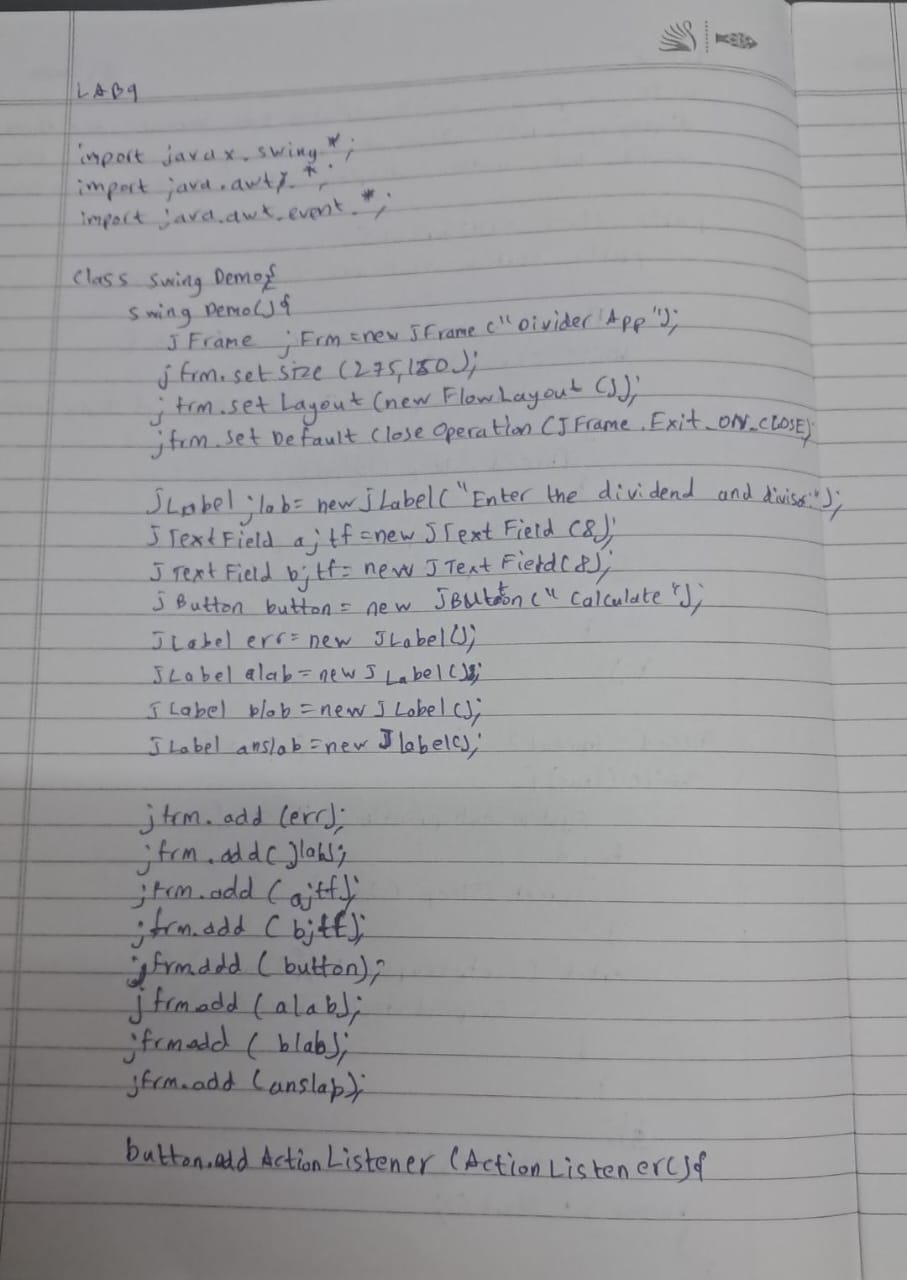 LAB9
import javax.swing.*;
import java.awt.*;
import java.awt.event.*;
class swing Demo{
swing Demo(){
JFrame jFrm=new JFrame ("Divider App");
jfrm.set size (275,150);
jfrm.set Layout (new FlowLayout ());
jfrm.set Default Close Operation (JFrame.Exit_ON_CLOSE)
JLabel jlab= new jLabel("Enter the dividend and divisor");
JTextField ajtf=new JText Field (8);
JText Field bjtf= new JText Field(8);
JButton button= new JButton("Calculate");
JLabel err= new JLabel();
JLabel alab=new JLabel();
JLabel blob=new JLabel();
JLabel anslab=new Jlabel();
jfrm.add (err);
jfrm.add(jlab);
jfrm.add (ajtf);
jfrm.add (bjtf);
jfrmadd (button);
jfrmadd (alab);
jfrmadd (blab);
jfrm.add (anslap);
button.add ActionListener (ActionListener(){